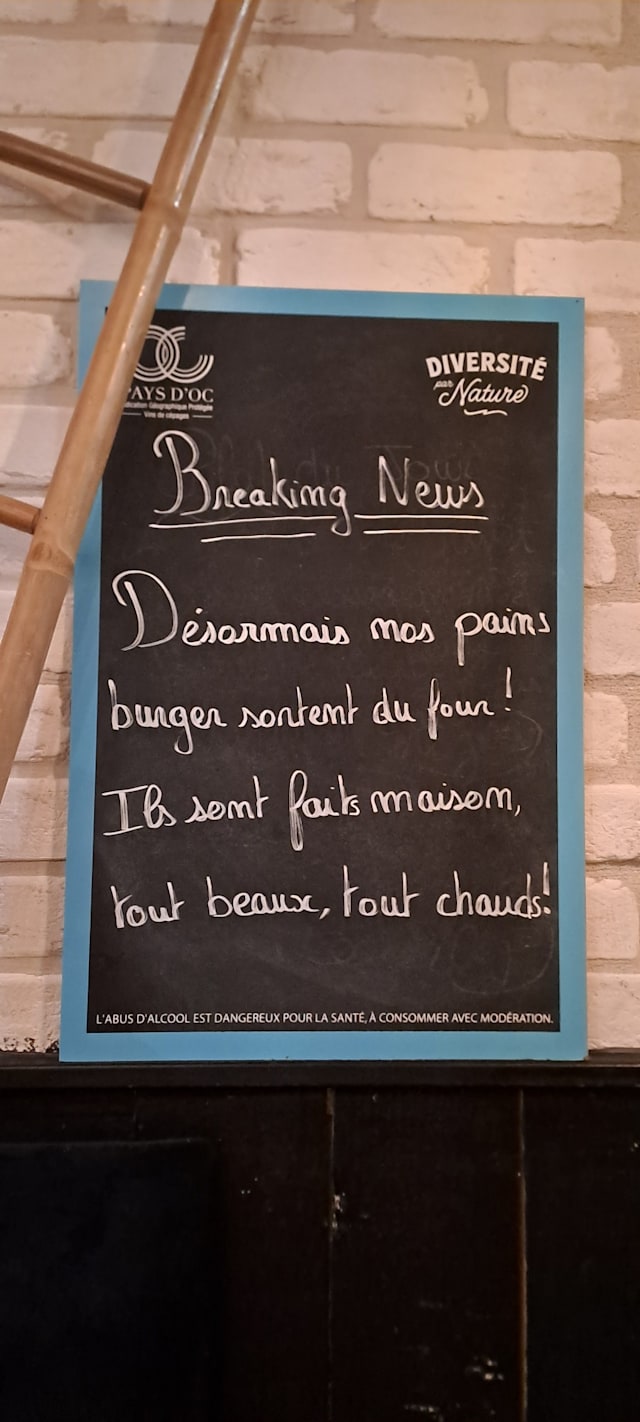 PAYS D'OC
Indication Géographique Protégée
Vins de cépages
DIVERSITÉ
par Nature
Breaking News
Désormais nos pains
burger sortent du four!
Ils sont faits maison,
tout beaux, tout chauds!
L'ABUS D'ALCOOL EST DANGEREUX POUR LA SANTÉ, À CONSOMMER AVEC MODÉRATION.